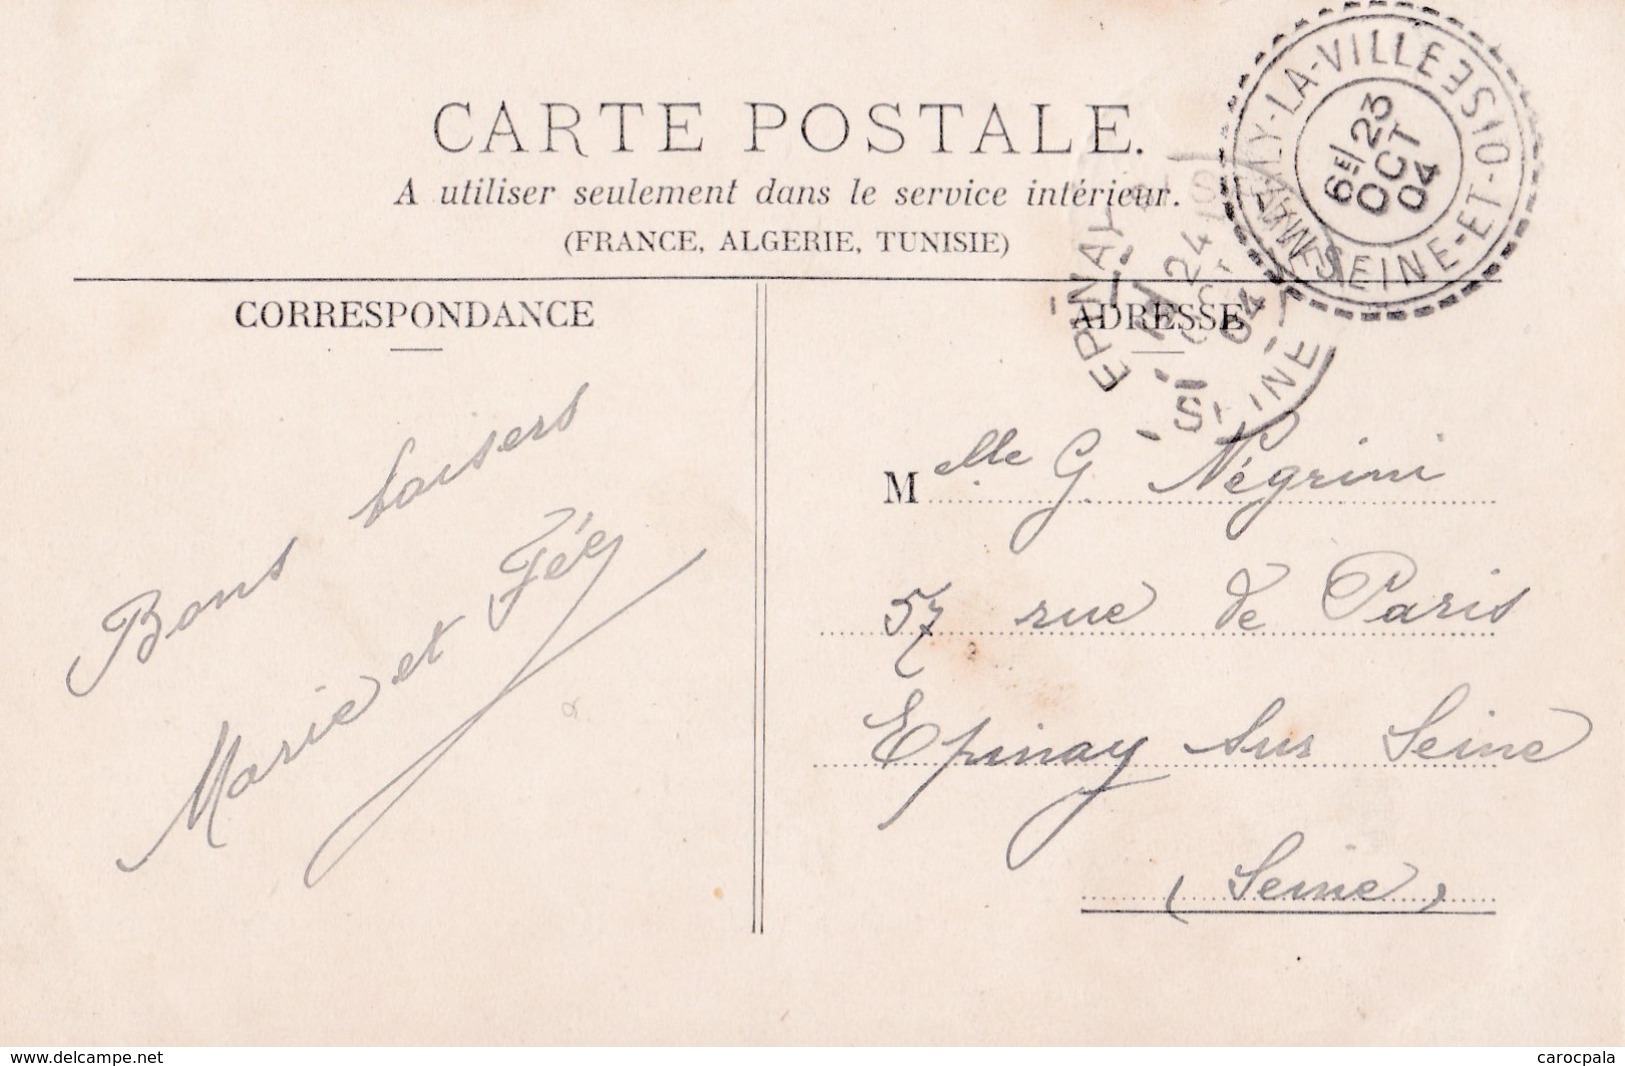 CARTE POSTALE.
A utiliser seulement dans le service intérieur.
(FRANCE, ALGERIE, TUNISIE)
LA-VILLE
SEINE-ET-OISE
6E/23
OCT
04
EPINAY
24
04
SEINE
CORRESPONDANCE
Bons baisers
Marie et Fée
ADRESSE
Melle G Négrini
57 rue de Paris
Epinay sur Seine
(Seine)
www.delcampe.net
carocpala